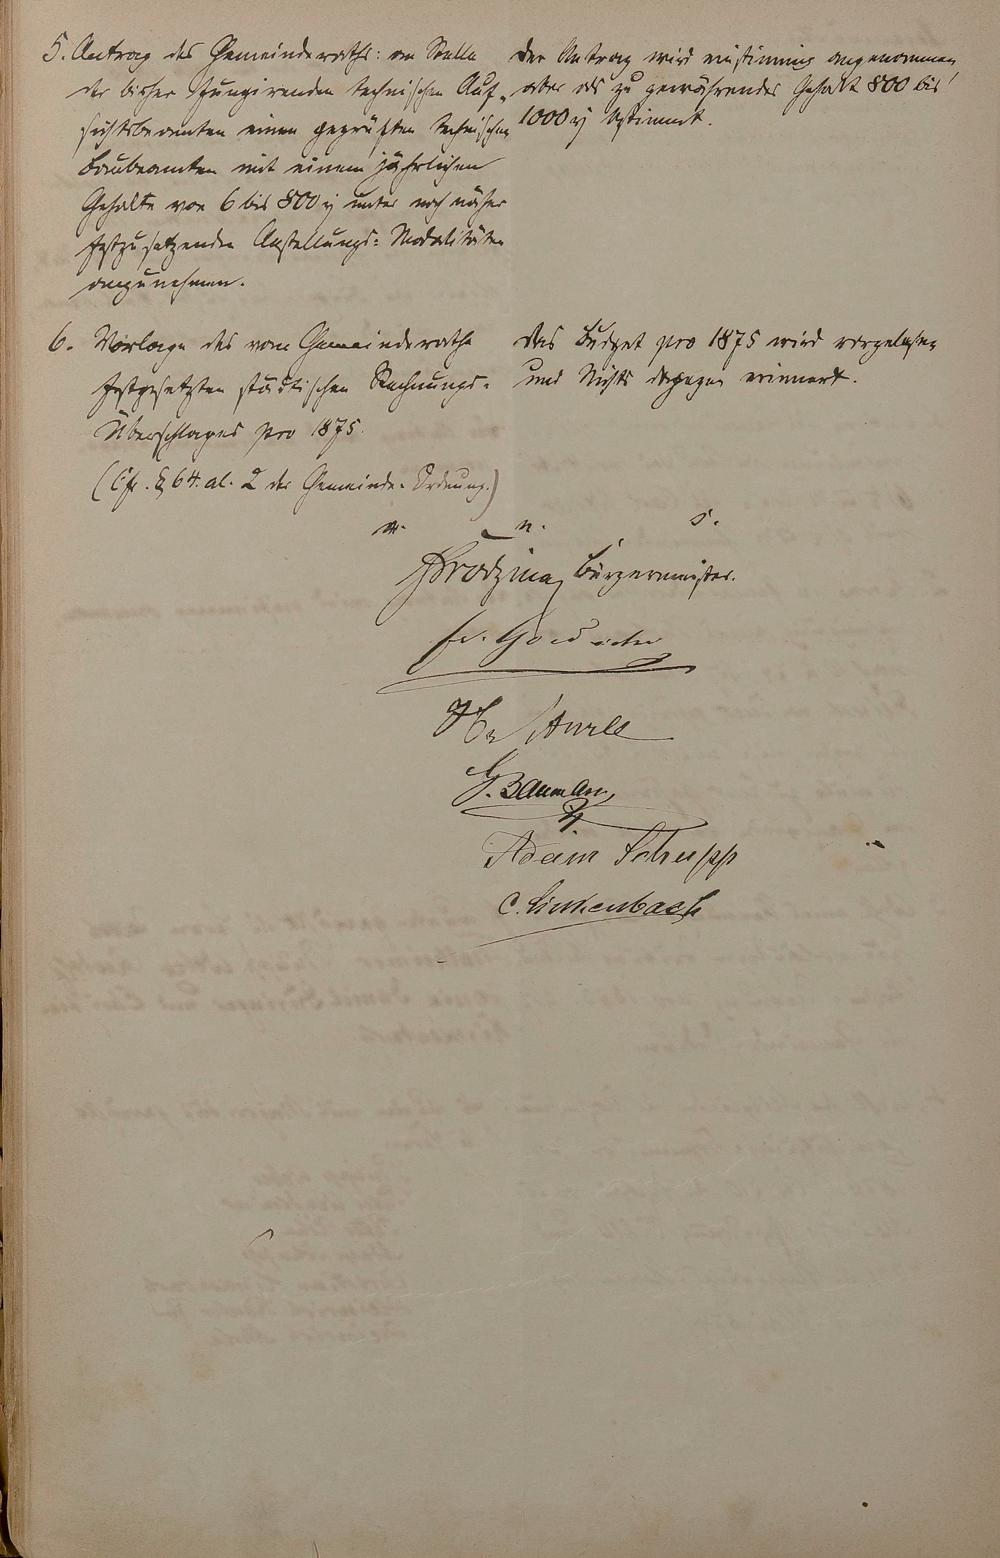 5. Antrag des Gemeinderaths: an Stelle
der bisher fungirenden technischen Auf-
sichtsbeamten einen geprüften technischen
Baubeamten mit einem jährlichen
Gehalte von 6 bis 800 unter noch näher
festzusetzenden Anstellungs-Modalitäten
anzunehmen.
Der Antrag wird einstimmig angenommen,
aber als zu gewährender Gehalt 800 bis
1000 bestimmt.
6. Vorlage des vom Gemeinderathe
festgesetzten städtischen Rechnungs-
Überschlages pro 1875.
(Cfr. § 64. al. 2 der Gemeinde-Ordnung.)
Das Budget pro 1875 wird vorgelesen
und Nichts dagegen erinnert.
v. n. s.
Bürgermeister.
Fr.
G. Baumann
Adam Schupp
C. Linkenbach